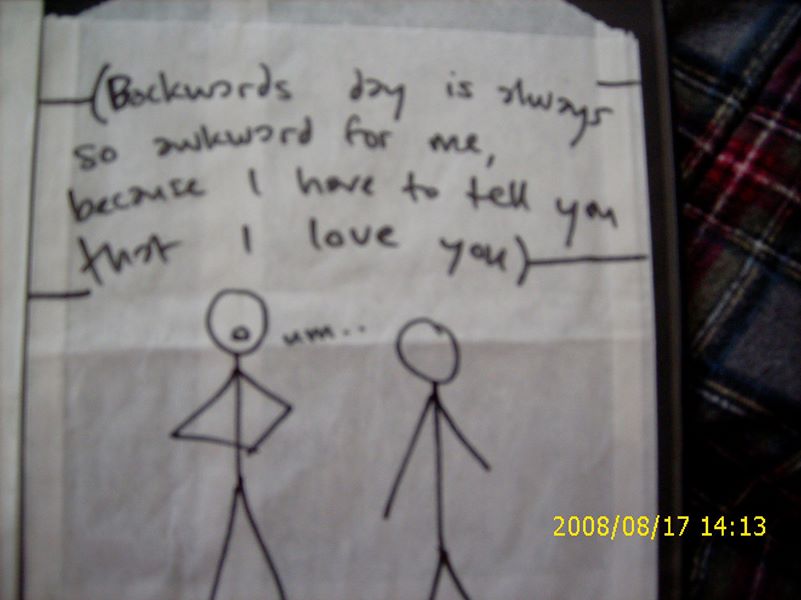 (Backwards day is always
so awkward for me,
because I have to tell you
that I love you)
um..
2008/08/17 14:13